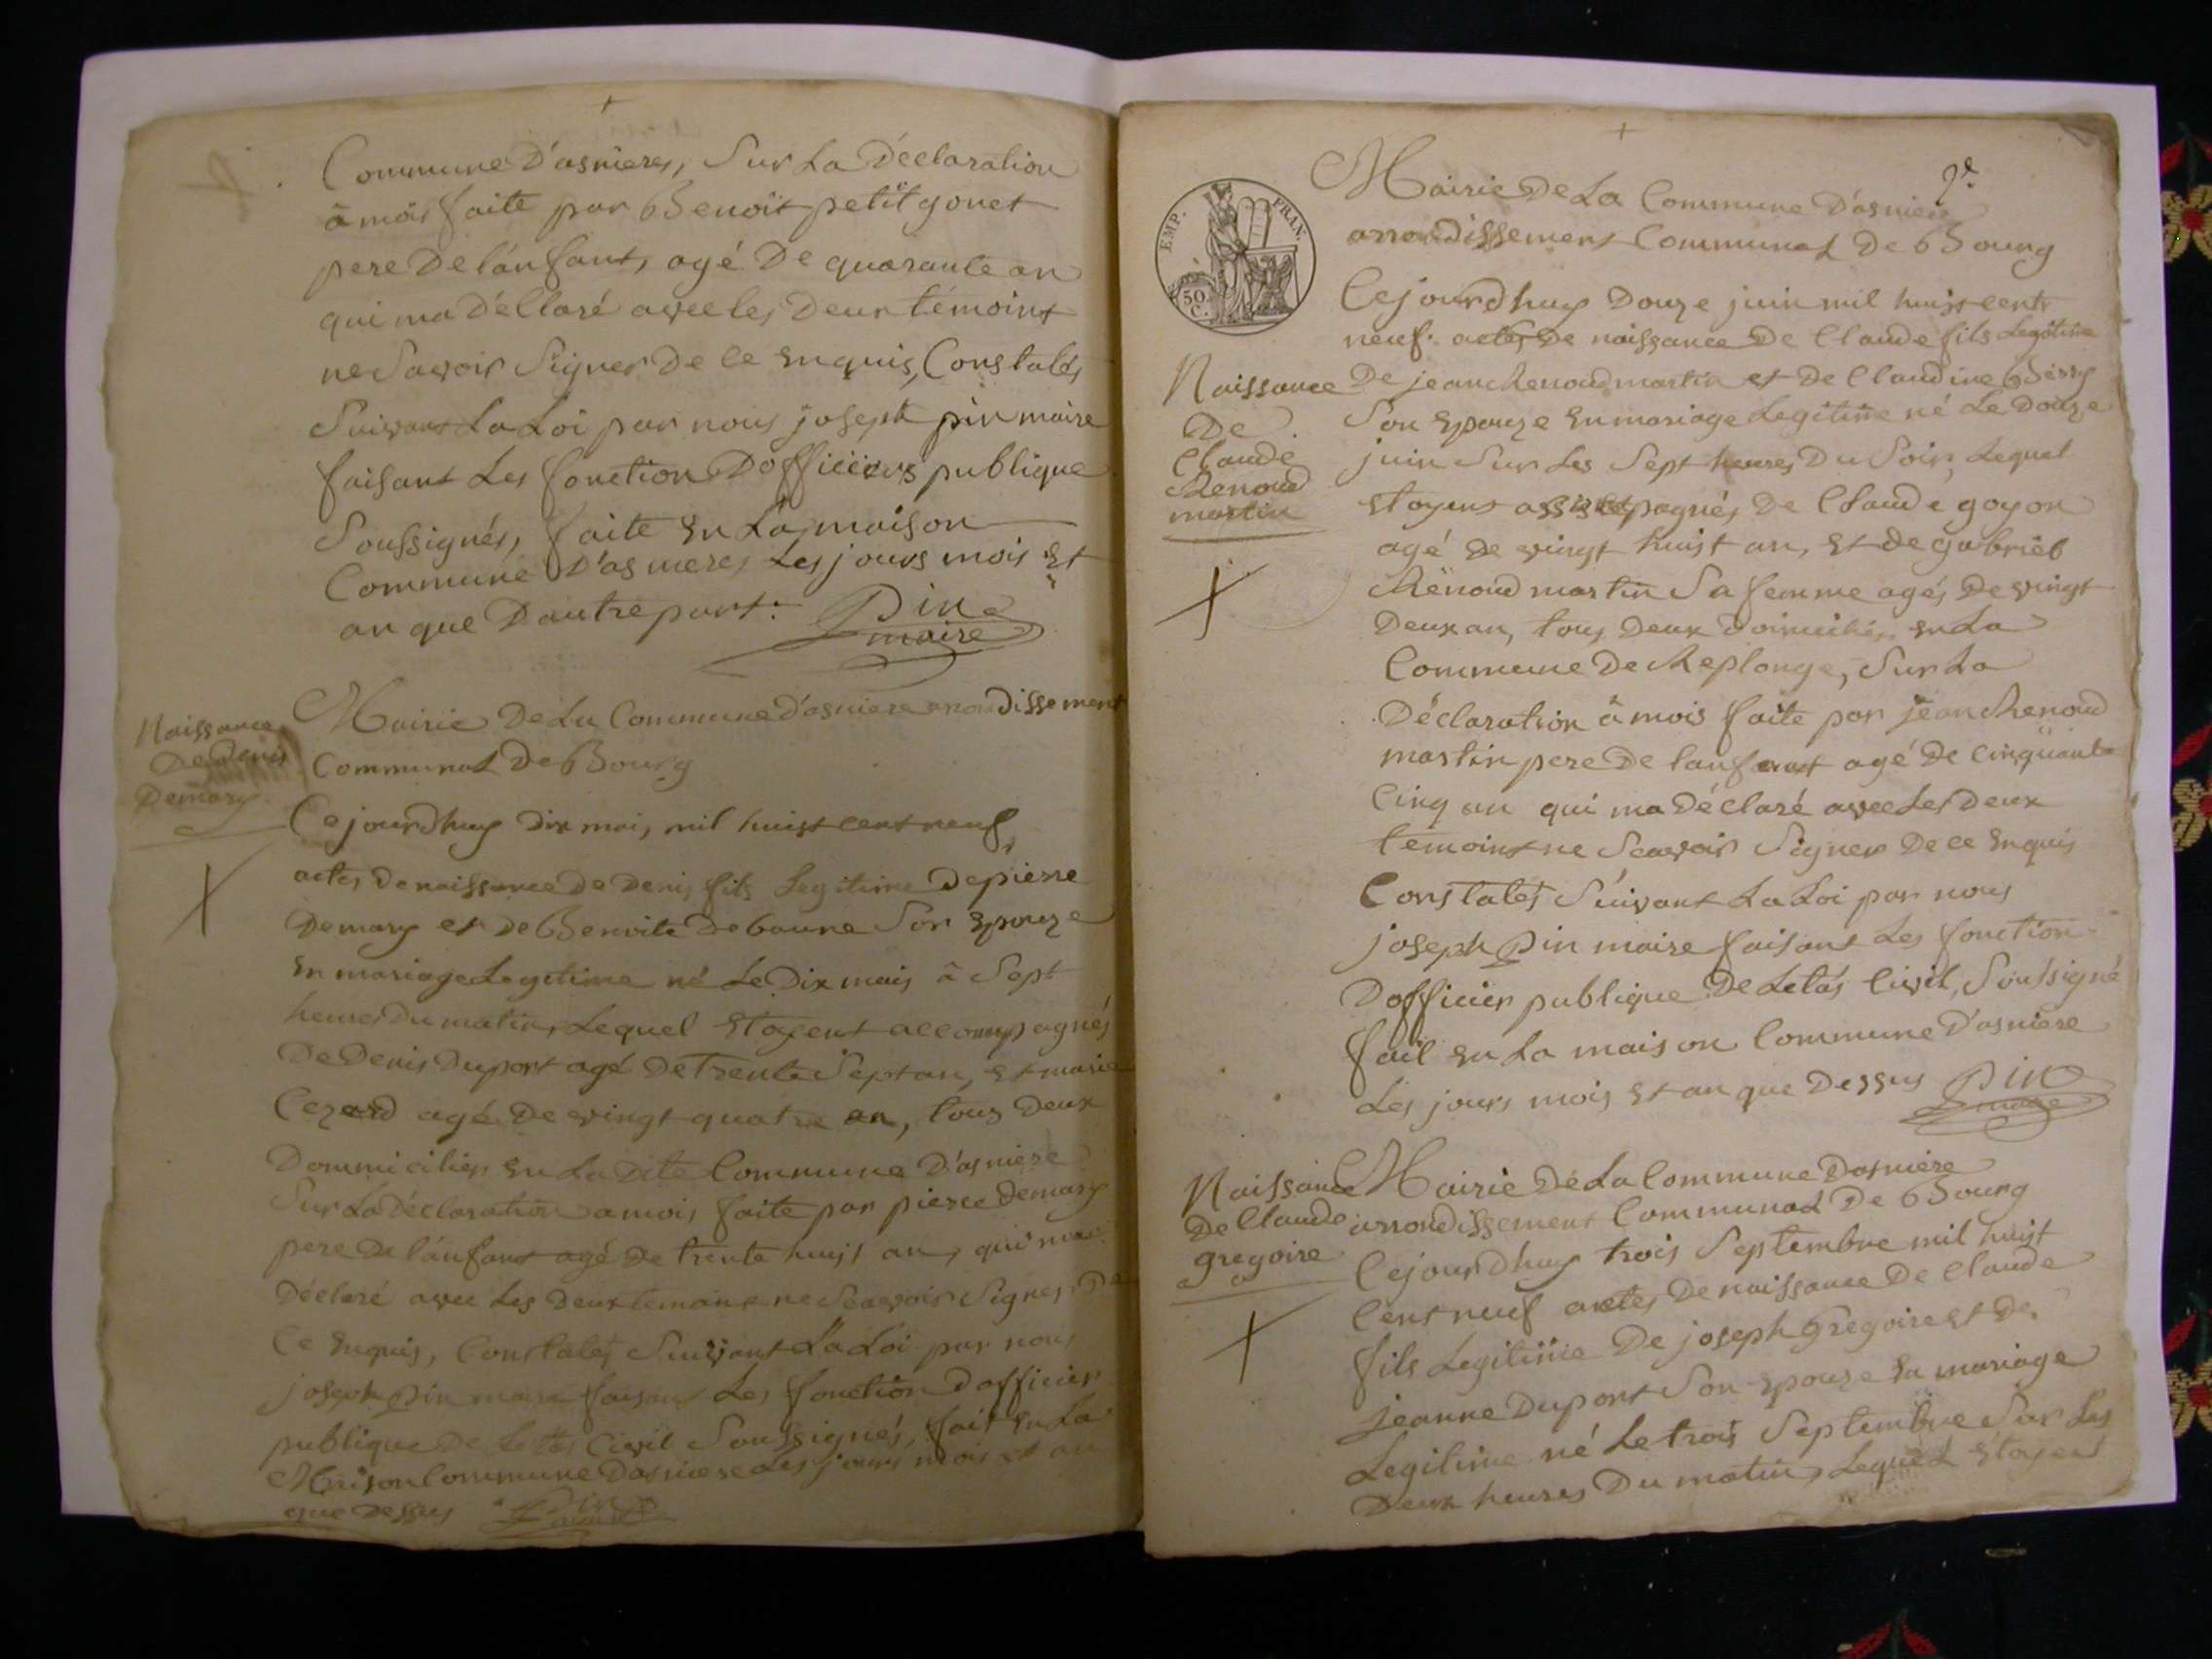 Commune D'asnieres, Sur La Déclaration
â mois faite par Benoit petitgonet
pere De lánfant, agé De quarante an
qui ma Déllaré avec les Deux témoint
ne Savoir Signer De ce Enquis, Constatés
Suivant La Loi par nous joseph pin maire
faisant Les fonction Dofficiers publique
Soussignés, faite En La maison
Commune D'asnieres, Les jours mois Et
an que Dautre part: Pin
maire
Naissance
De Denis
Demary
Mairie De La Commune D'asniere arrondissement
Communal De Bourg
Cejourdhuy Dix mai, mil huist cent neuf
actes de naissance de Denis fils Legitime De pierre
Demary et de Benoite Debaune Son Epouze
En mariage Legitime né Le Dix mais â Sept
heures Du matin, Lequel Etoyent accompagnés
De Denis Duport agé De Trente Sept an, Et marie
Cezard agé De vingt quatre an, tous Deux
Dommiciliés En La Dite Commune D'asniere
Sur La Déclaration amois faite par pierre Demary
pere De lánfant agé De trente huist an, qui ma
Déclaré avec Les Deux temoint ne Scavoir Signer De
Ce Enquis, Constatés Suivant La Loi par nous
joseph pin maire faisant Les fonction Dofficier
publique De Letás Civil Soussignés, fait En La
Maison Commune Dasniere Les jours mois et an
que Dessus Pin
maire
2e.
EMP. FRAN.
50. C.
Mairie De La Commune D'asniere
arrondissement Communal De Bourg
Cejourdhuy Douze juin mil huist cent
neuf. actes De naissance De Claude fils Legitime
Naissance
De
Claude
Renoud
martin
De jean Renoud martin et De Claudine Bessy
Son Epouze En mariage Legitime né Le Douze
juin Sur Les Sept heures Du Soir, Lequel
Etoyent De Claude goyon
agé De vingt huist an, Et de gabriel
Renoud martin Sa femme agés De vingt
Deux an, tous Deux Domiciliés En La
Commune De Replonge, Sur La
Déclaration â mois faite par jean Renoud
martin pere De lanfant agé De Cinquante
Cinq an qui ma Déclaré avec Les Deux
temoint ne Scavoir Signer De ce Enquis
Constatés Suivant La Loi par nous
joseph Pin maire faisant Les fonction
Dofficier publique De Letás Civil, Soussigné
fait En La maison Commune D'asniere
Les jours mois Et an que Dessus Pin
maire
Naissance
De Claude
gregoire
Mairie De La Commune Dasniere
arrondissement Communal De Bourg
Cejourdhuy trois Septembre mil huist
Cent neuf actes De naissance De Claude
fils Legitime De joseph gregoire Et De
jeanne Dupont Son Epouze En mariage
Legitime né Le trois Septembre Sur Les
Deux heures Du matin, Lequel Etoyent